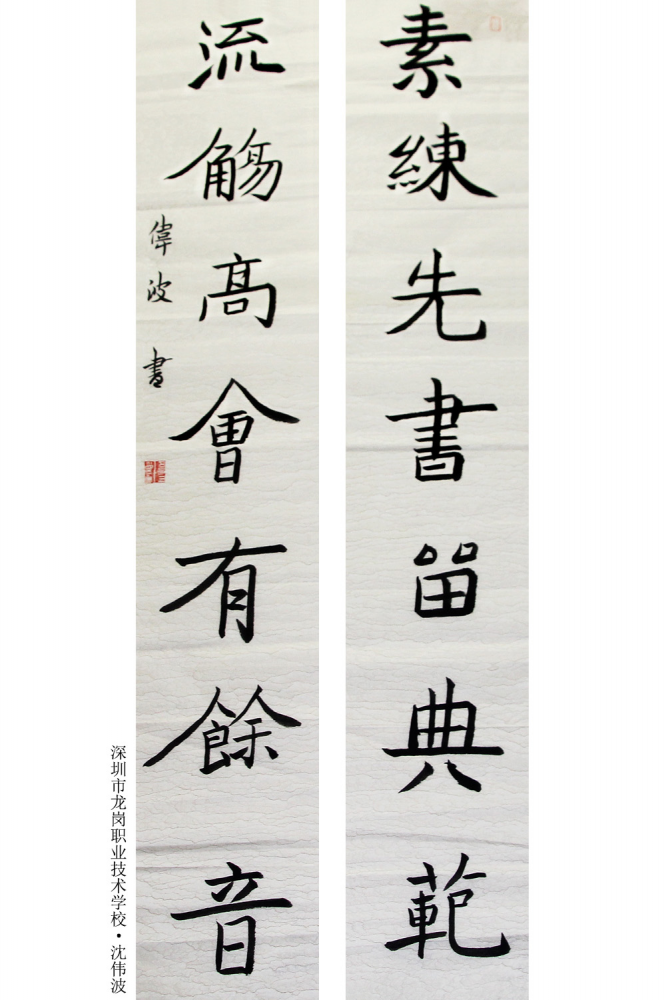 素練先書留典範
流觴高會有餘音
偉波書
深圳市龙岗职业技术学校·沈伟波